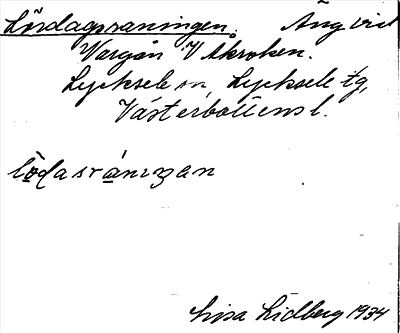 Lördagsraningen. Äng vid
Vargån V Akroken.
Lycksele sn, Lycksele tg,
Västerbottens l.
lö̀da srániŋan
Lisa Lidberg 1934